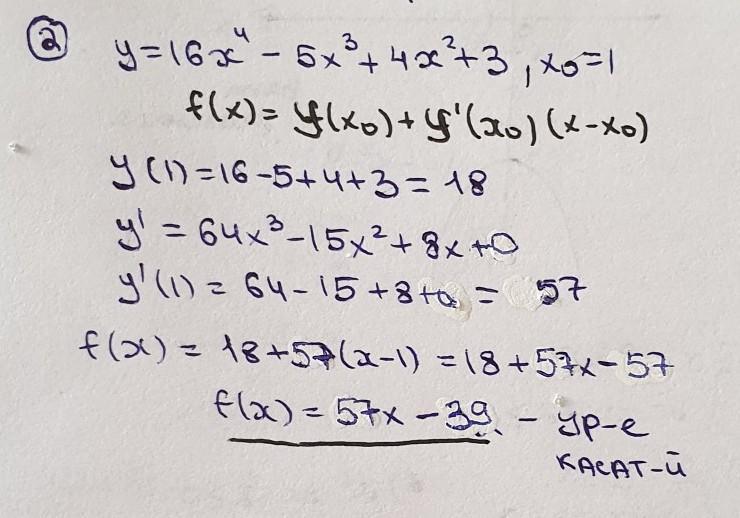 ② y=16x⁴-5x³+4x²+3, x₀=1
f(x)=y(x₀)+y'(x₀)(x-x₀)
y(1)=16-5+4+3=18
y'=64x³-15x²+8x+0
y'(1)=64-15+8+0=57
f(x)=18+57(x-1)=18+57x-57
f(x)=57x-39 - ур-е
касат-й